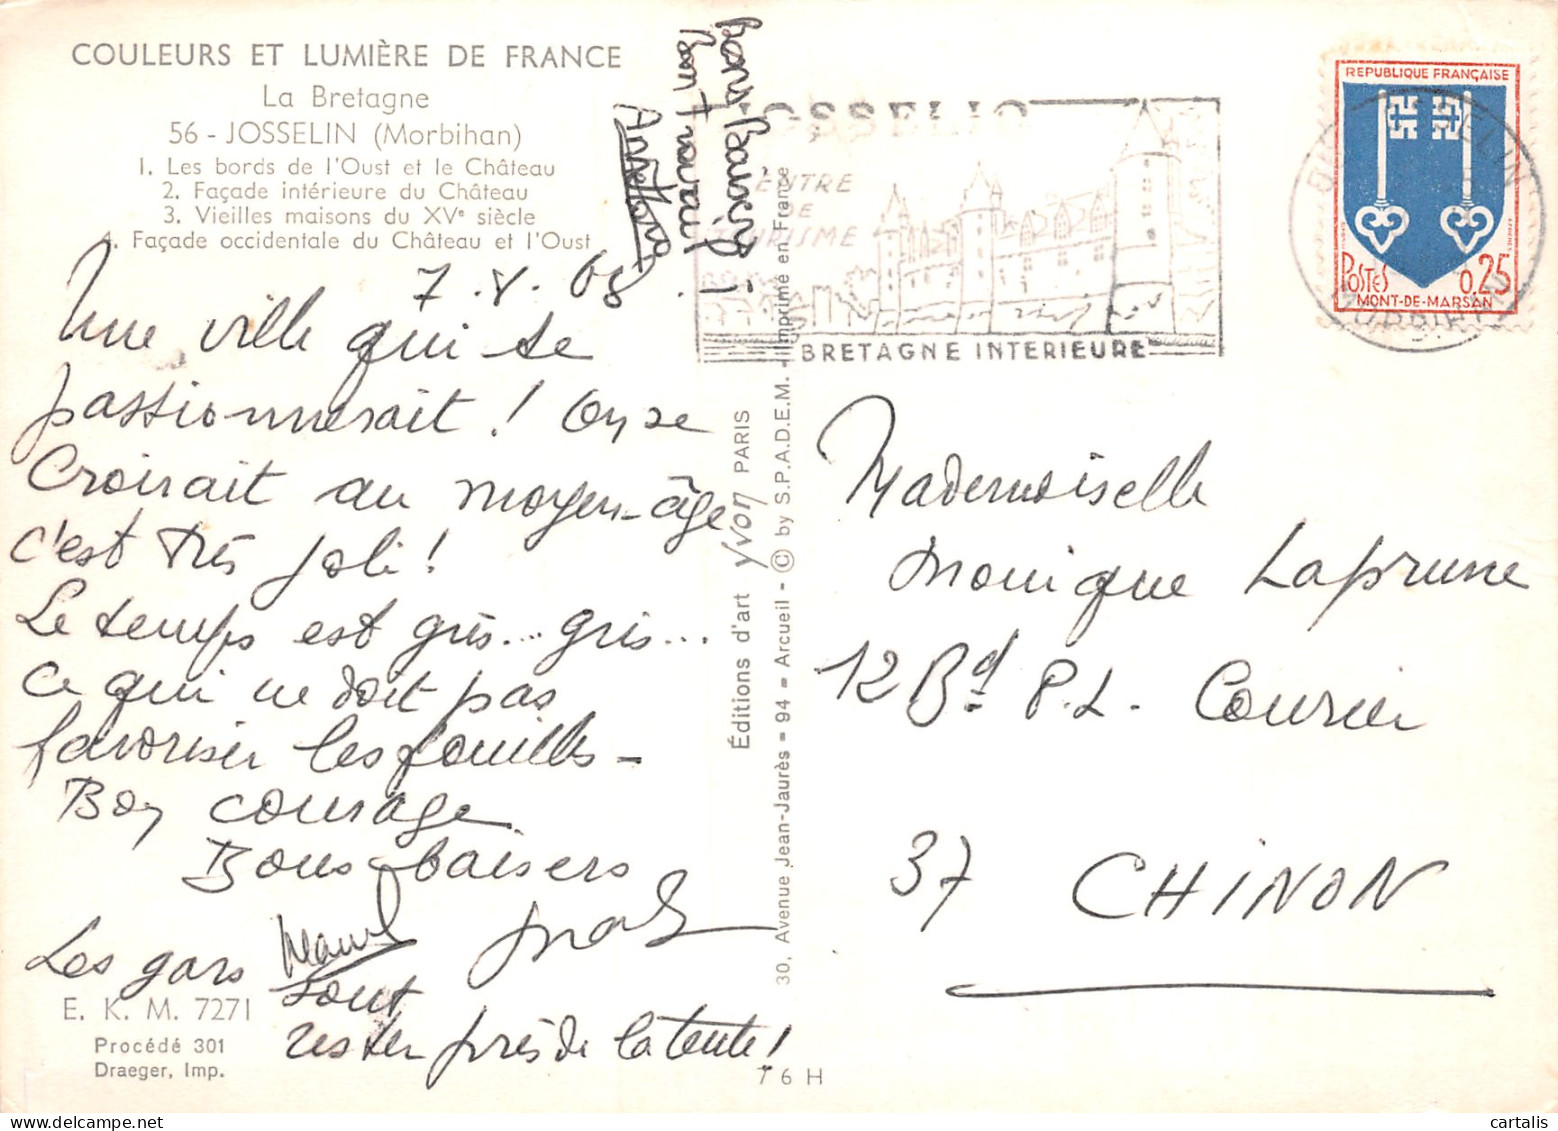 COULEURS ET LUMIÈRE DE FRANCE
La Bretagne
56 - JOSSELIN (Morbihan)
1. Les bords de l'Oust et le Château
2. Façade intérieure du Château
3. Vieilles maisons du XVe siècle
4. Façade occidentale du Château et l'Oust
7.8.68.
Une ville qui te
passionnerait ! On se
Croirait au moyen-âge
c'est très joli !
Le temps est gris... gris...
Ce qui ne doit pas
favoriser les fouilles -
Bon courage
Bons baisers
Les gars
sont
rester près de la tente !
E. K. M. 7271
Procédé 301
Draeger, Imp.
76H
Bons Baisers
Bon travail !
Éditions d'art yvon PARIS
30, Avenue Jean-Jaurès = 94 = Arcueil - © by S.P.A.D.E.M. - Imprimé en France
OSSELIN
CENTRE
DE
TOURISME
BRETAGNE INTERIEURE
REPUBLIQUE FRANÇAISE
POSTES 0,25
MONT-DE-MARSAN
MORBIHAN
Mademoiselle
Monique Laprune
12 Bd P.L. Courier
37 CHINON
cartalis